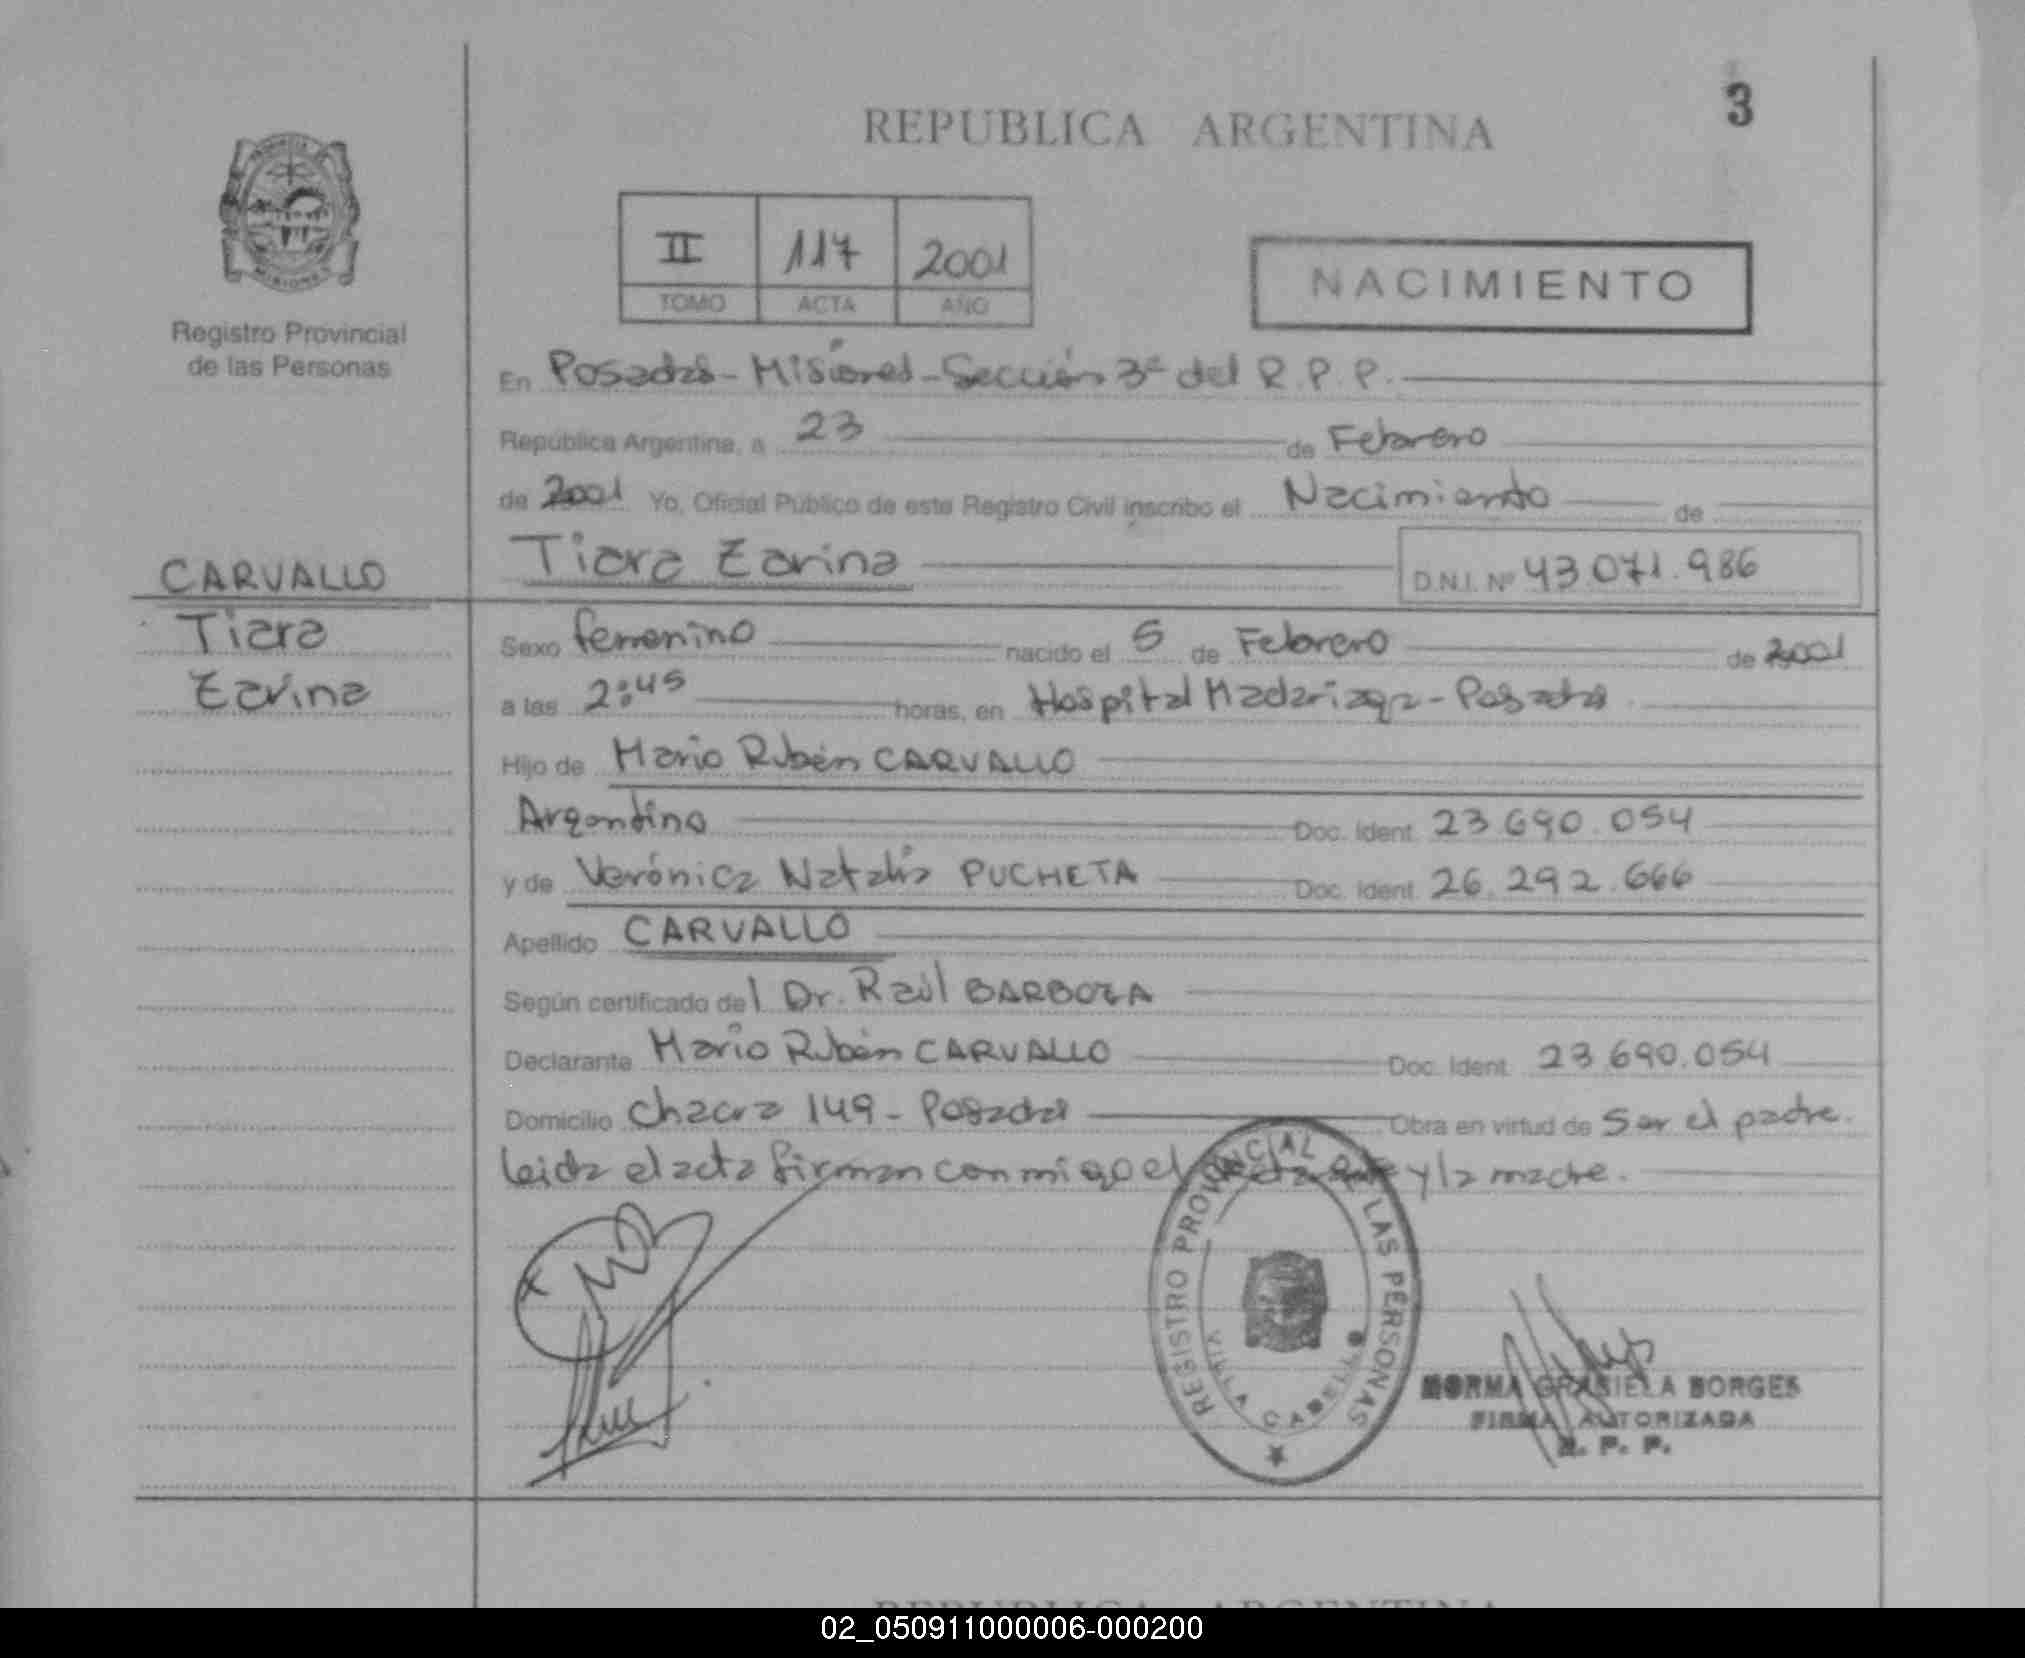 3
REPUBLICA ARGENTINA
II 117 2001
TOMO ACTA AÑO
NACIMIENTO
Registro Provincial
de las Personas
En Posadas - Misiones - Sección 3ª del R.P.P.
República Argentina, a 23 de Febrero
de 2001 Yo, Oficial Público de este Registro Civil inscribo el Nacimiento de
CARVALLO
Tiara Zarina
D.N.I. Nº 43.071.986
Tiara
Zarina
Sexo femenino nacido el 5 de Febrero de 2001
a las 2:45 horas, en Hospital Madariaga - Posadas
Hijo de Mario Rubén CARVALLO
Argentino Doc. Ident. 23.690.054
y de Verónica Natalia PUCHETA Doc. Ident. 26.292.666
Apellido CARVALLO
Según certificado del Dr. Raúl BARBOZA
Declarante Mario Rubén CARVALLO Doc. Ident. 23.690.054
Domicilio Chacra 149 - Posadas Obra en virtud de ser el padre.
Leida el acta firman conmigo el declarante y la madre.
REGISTRO PROVINCIAL DE LAS PERSONAS
VILLA CABELLO
NORMA GRASIELA BORGES
FIRMA AUTORIZADA
R. P. P.
REPUBLICA ARGENTINA
02_050911000006-000200